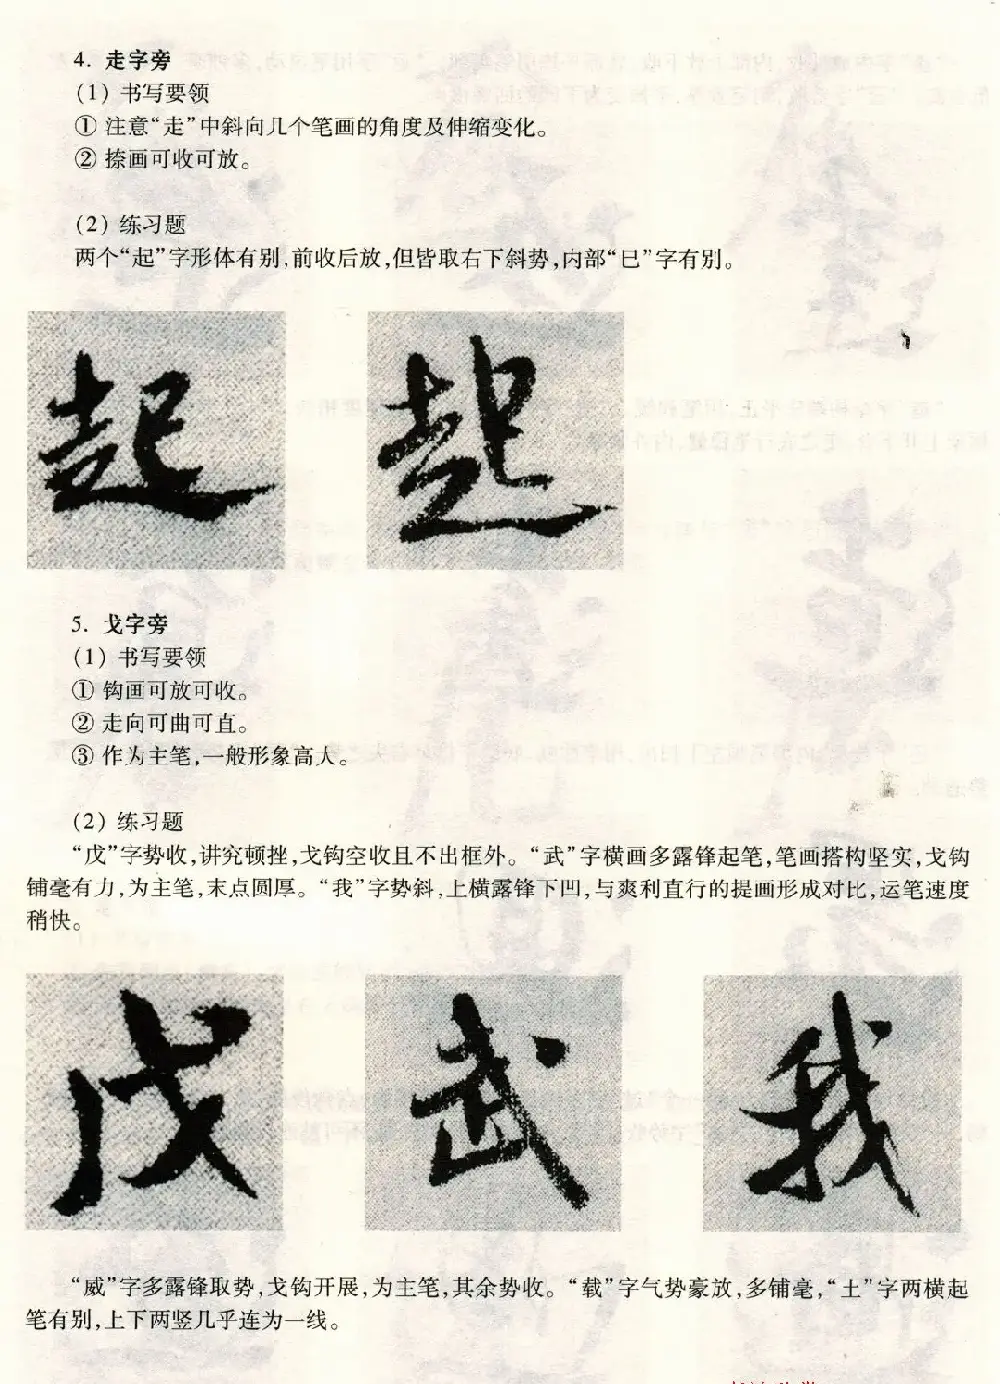 4. 走字旁
(1) 书写要领
① 注意“走”中斜向几个笔画的角度及伸缩变化。
② 捺画可收可放。
(2) 练习题
两个“起”字形体有别,前收后放,但皆取右下斜势,内部“巳”字有别。
起 起
5. 戈字旁
(1) 书写要领
① 钩画可放可收。
② 走向可曲可直。
③ 作为主笔,一般形象高大。
(2) 练习题
“戊”字势收,讲究顿挫,戈钩空收且不出框外。“武”字横画多露锋起笔,笔画搭构坚实,戈钩
铺毫有力,为主笔,末点圆厚。“我”字势斜,上横露锋下凹,与爽利直行的提画形成对比,运笔速度
稍快。
戊 武 我
“威”字多露锋取势,戈钩开展,为主笔,其余势收。“载”字气势豪放,多铺毫,“土”字两横起
笔有别,上下两竖几乎连为一线。